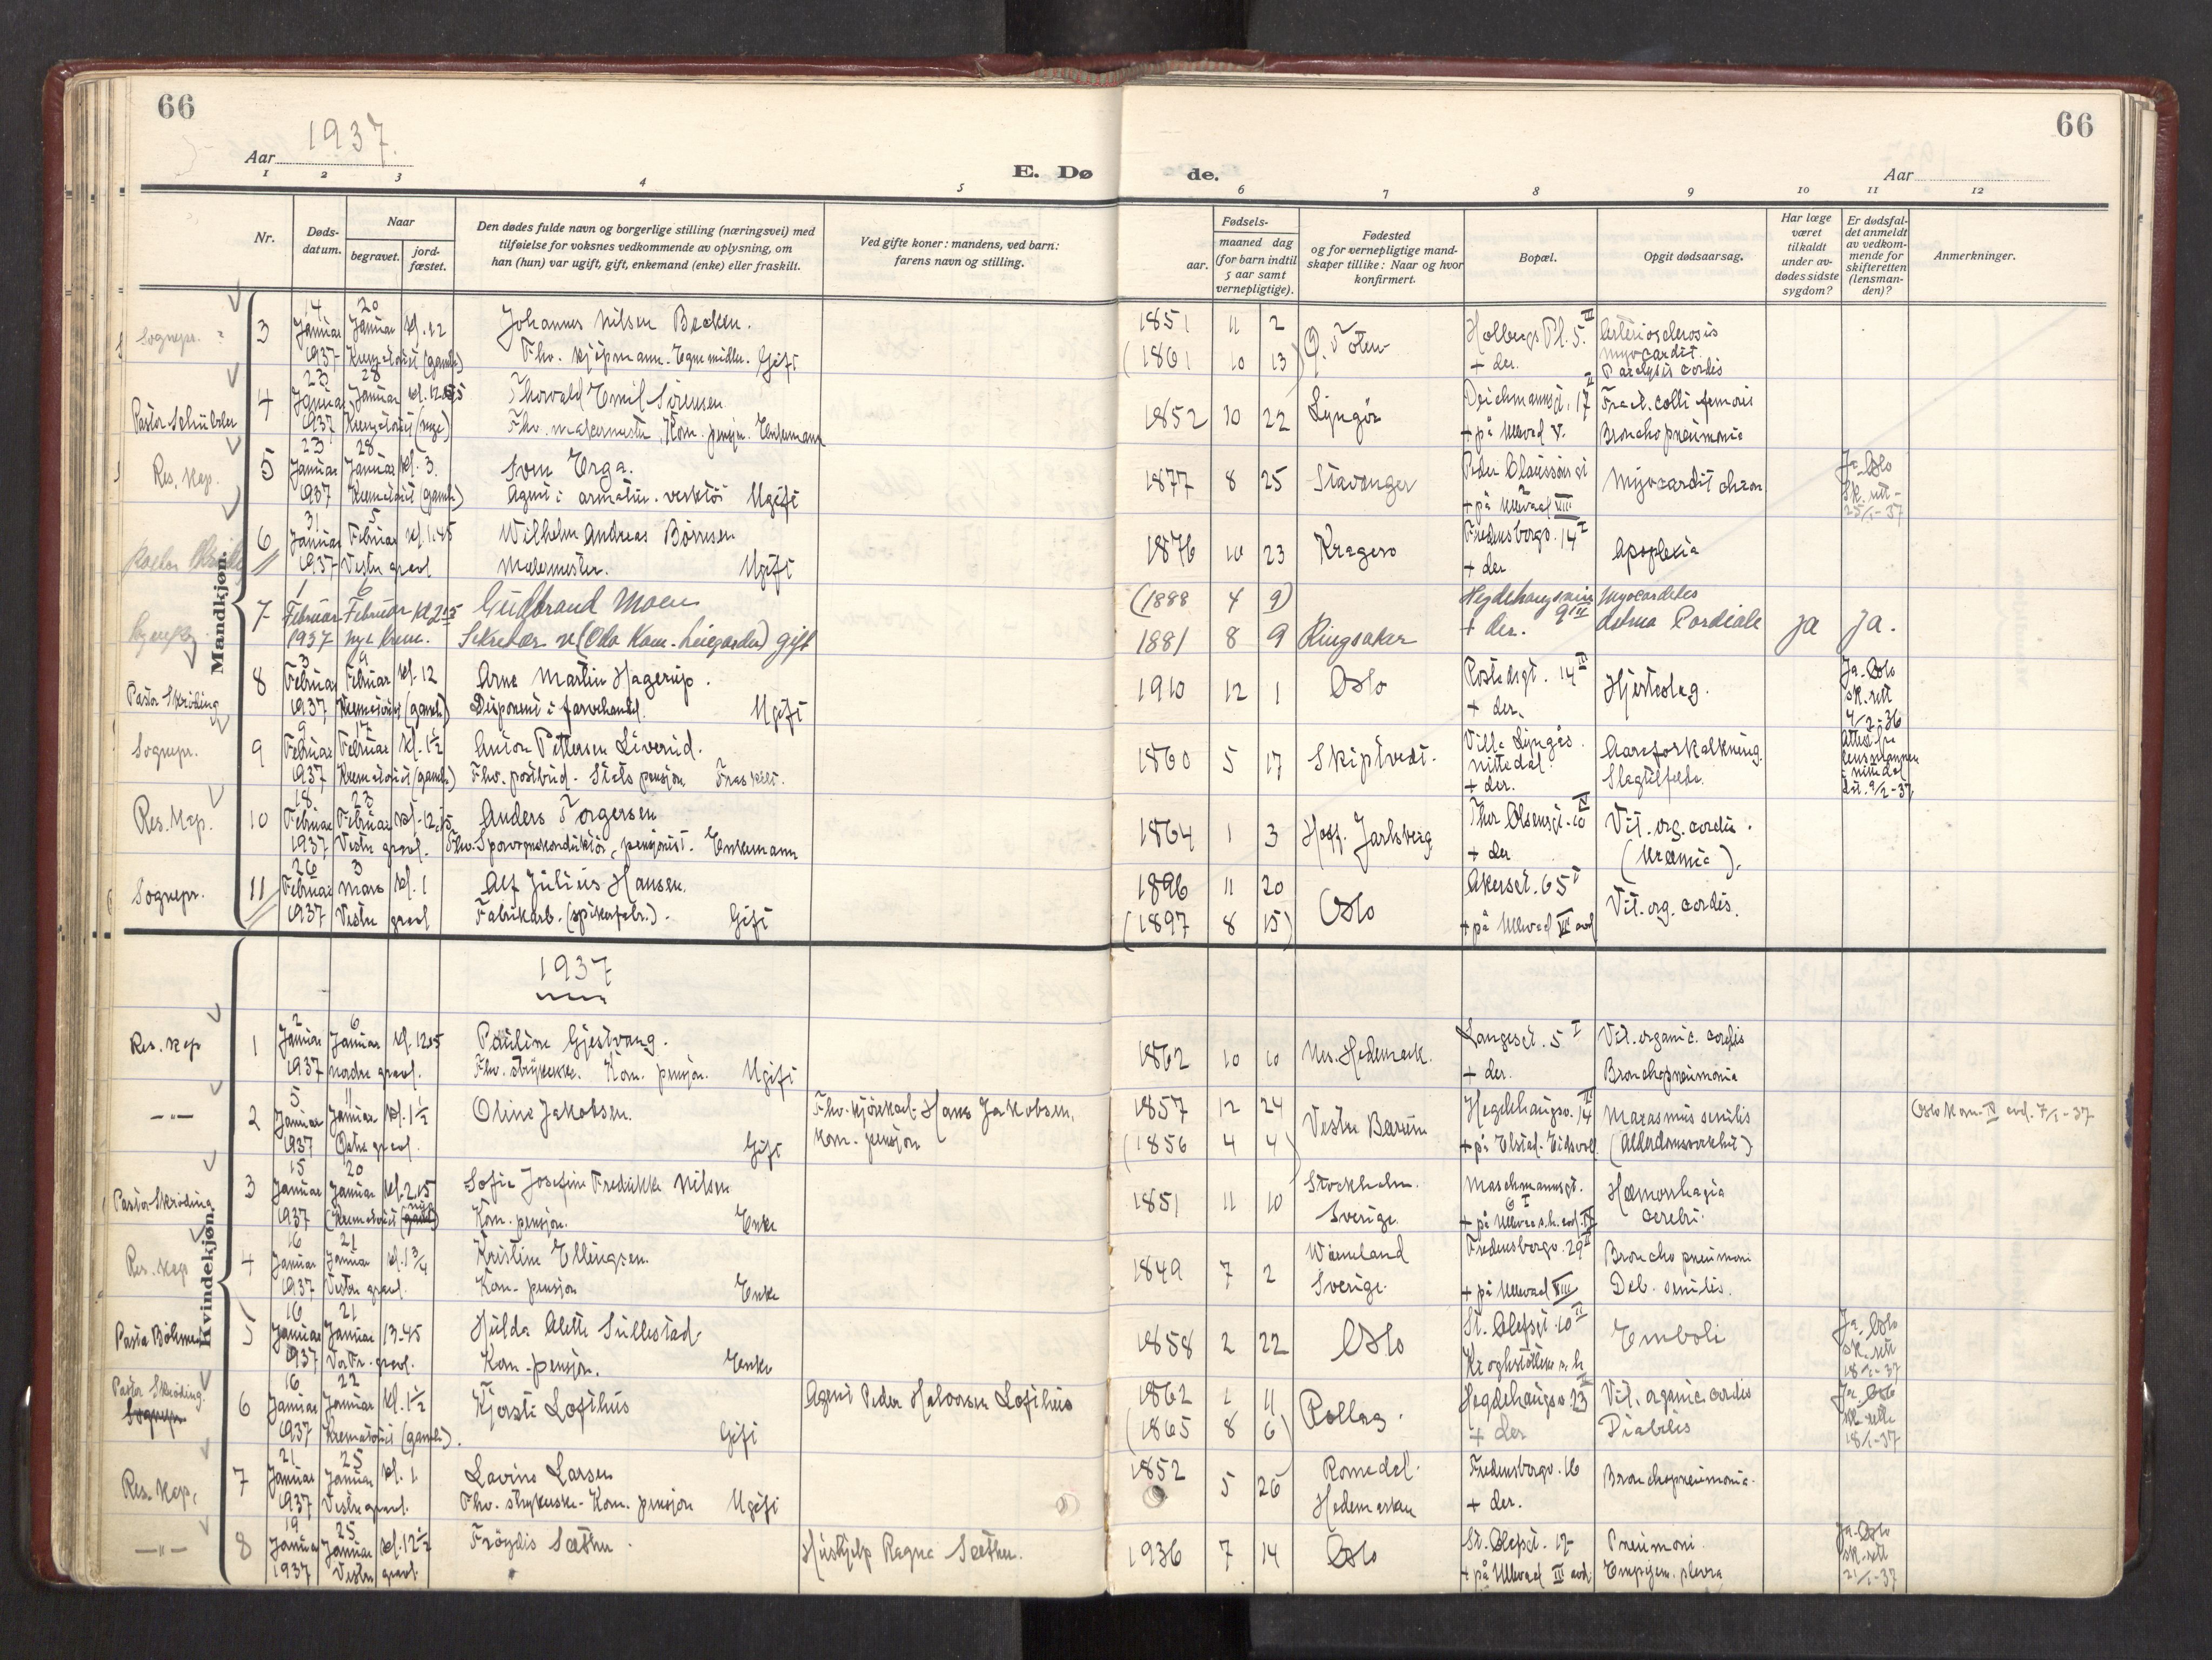 66
Aar 1937.
E. Dø
1 2 3 4 5
Nr.
Døds-
datum.
Naar
begravet.
jord-
fæstet.
Den dødes fulde navn og borgerlige stilling (næringsvei) med
tilføielse for voksnes vedkommende av oplysning, om
han (hun) var ugift, gift, enkemand (enke) eller fraskilt.
Ved gifte koner: mandens, ved barn:
farens navn og stilling.
66
de.
Aar
6 7 8 9 10 11 12
aar.
Fødsels-
maaned dag
(for barn indtil
5 aar samt
vernepligtige).
Fødested
og for vernepligtige mand-
skaper tillike: Naar og hvor
konfirmert.
Bopæl.
Opgit dødsaarsag.
Har læge
været
tilkaldt
under av-
dødes sidste
sygdom?
Er dødsfal-
det anmeldt
av vedkom-
mende for
skifteretten
(lensman-
den)?
Anmerkninger.
Mandkjøn.
Sognepr. 3 14 Januar 1937 20 Januar kl. 12 Krematoriet (gamle)
Johannes Nilsen Brekken.
Fhv. kjøpmann. Egne midler. Gift
1851 11 2
(1861 10 13)
Ø. Toten
Holbergs Pl. 5. II
+ der.
Arteriosclerosis
myocardit.
Paralysis cordis
4 23 Januar 1937 28 Januar Krematoriet (nye)
Thorvald Emil Sörensen
Fhv. Kom. pensjon. Enkemann
1852 10 22 Lyngör
Deichmannsgt. 17 II
+ på Ullevaal V.
Fract. colli femoris
Bronchopneumonia
Res. Kap. 5 23 Januar 1937 28 Januar kl. 3. Krematoriet (gamle)
Sven Erga.
Agent i armatur. verktöi Ugift
1877 8 25 Stavanger
Peder Claussøns gt
+ på Ullevaal VIII
Myocardit chron
Ja. Oslo
sk. rett -
25/1-37
6 31 Januar 1937 5 Februar kl. 1.45 Vestre gravl
Wilhelm Andreas Börresen
Malermester. Ugift
1876 10 23 Kragerø
Fredensborgv. 14 I
+ der
Apoplexia
7 1 Februar 1937 6 Februar kl 2 15 nye krem.
Gudbrand Moen
Sekretær v (Oslo Kom. Leiegårder) gift
(1888 4 9)
1881 8 9 Ringsaker
Hegdehaugsveien 9 II
+ der.
Myocardeles
Astma Cordiale
ja ja.
Pastor Skröding 8 3 Februar 1937 9 Februar kl. 12 Krematoriet (gamle)
Arne Martin Hagerup.
Disponent i farvehandel. Ugift
1910 12 1 Oslo
14 III
+ der.
Hjerteslag.
Ja. Oslo
sk. rett
4/2-36
Sognepr. 9 9 Februar 1937 17 Februar kl. 1½ Krematoriet (gamle)
Anton Pettersen Liverud.
Fhv. postbud. Stats pensjon Fraskilt.
1860 5 17 Skiptvedt.
Villa Lyngås.
Nittedal.
+ der.
Aareforkalkning.
Slagtilfelde.
Attest fra
lensmannen
i Nittedal
dat. 9/2-37
Res. Kap. 10 18 Februar 1937 23 Februar kl. 12.15 Vestre gravl.
Anders Torgersen
Fhv. Sporvognskonduktör, pensjonist. Enkemann
1864 1 3 Hoff. Jarlsberg
Thor Olsensgt. 10 IV
+ der
Vit. org. cordis.
(Uræmia).
Sognepr. 11 26 Februar 1937 3 Mars kl. 1 Vestre gravl
Alf Julius Hansen.
Fabrikarb. (spikerfabr.). Gift
1896 11 20
(1897 8 15)
Oslo
Akersgt. 65 I
+ på Ullevaal VII avd
Vit. org. cordis.
1937
Kvindekjøn.
Res. Kap 1 2 Januar 1937 6 Januar kl. 12.15 Nordre gravl.
Pauline Gjestvang.
Fhv. strykerske. Kom. pensjon. Ugift
1862 10 10 Nes. Hedemark.
Langesgt. 5 I
+ der.
Vit. organic. cordis
Bronchopneumonia
-"- 2 5 Januar 1937 11 Januar kl. 1½ Østre gravl.
Oline Jakobsen. Gift
Fhv. kjörekarl Hans Jakobsen.
Kom. pensjon
1857 12 24
(1856 4 4)
Vestre Bærum
Hegdehaugsv. 14 II
+ på Elstad. Eidsvoll
Marasmus senilis
(Alderdomssvakhet)
Oslo Kom. IV avd. 7/1-37
Pastor Skröding 3 15 Januar 1937 20 Januar kl. 2.15 Krematoriet (nye)
Sofie Josefine Fredrikke Nilsen
Kom. pensjon. Enke
1851 11 10
Stockholm.
Sverige.
Maschmannsgt. 6 I
+ på Ullevaal s.h. avd. IV
Hæmorrhagia
cerebri.
Res. Kap 4 16 Januar 1937 21 Januar kl. 1¾ Vestre gravl.
Kristine Ellingsen.
Kom. pensjon Enke
1849 7 2
Värmland
Sverige.
Fredensborgv. 29 II
+ på Ullevaal VIII
Broncho pneumoni
Deb. senilis.
Pastor Böhmer 5 16 Januar 1937 21 Januar 13.45 Vor Fr. gravl.
Hulda Alette Sullestad
Kom. pensjon. Enke
1858 2 22 Oslo
St. Olafsgt. 10 II
Kroghstöttens s.h
Emboli
Ja. Oslo
sk. rett
18/1-37
Pastor Skröding. Sognepr. 6 16 Januar 1937 22 Januar kl. 1½ Krematoriet (gamle).
Kjersti Lofthus Gift
Agent Peder Halvorsen Lofthus
1862 1 11
(1865 8 6)
Rollag.
Hegdehaugsv. 23
+ der
Vit. organic. cordis
Diabetes
Ja Oslo
sk. rett
18/1-37
Res. Kap. 7 21 Januar 1937 25 Januar kl. 1 Vestre gravl.
Lovine Larsen
Fhv. strykerske - Kom. pensjon Ugift
1852 5 26
Romedal.
Hedemarken
Fredensborgv. 16
+ der.
Bronchopneumonia.
-"- 8 19 Januar 1937 25 Januar kl. 12½ Vestre gravl.
Fröydis Sæther.
Hushjelp Ragna Sæther.
1936 7 14 Oslo
St. Olafsgt. 12
+ på Ullevaal III avd
Pneumoni.
Empyem. plevra
Ja. Oslo
sk. rett
21/1-37